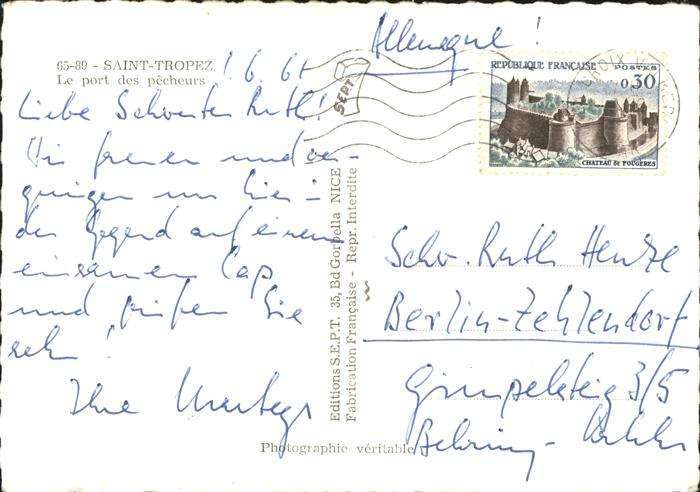 65-89 - SAINT-TROPEZ
Le port des pêcheurs
1.6.61
Liebe Schwester Ruth!
Wir freuen und ver-
gnügen uns hier in
der Gegend auf einem
einsamen Cap
und grüßen Sie
sehr!
Ihre
Editions S.E.P.T. 35, Bd Gorbella NICE
Fabrication Française - Repr. Interdite
Photographie véritable
SEPT
Allemagne!
REPUBLIQUE FRANÇAISE POSTES
0,30
CHATEAU DE FOUGERES
Schw. Ruth Henze
Berlin-Zehlendorf
3/5